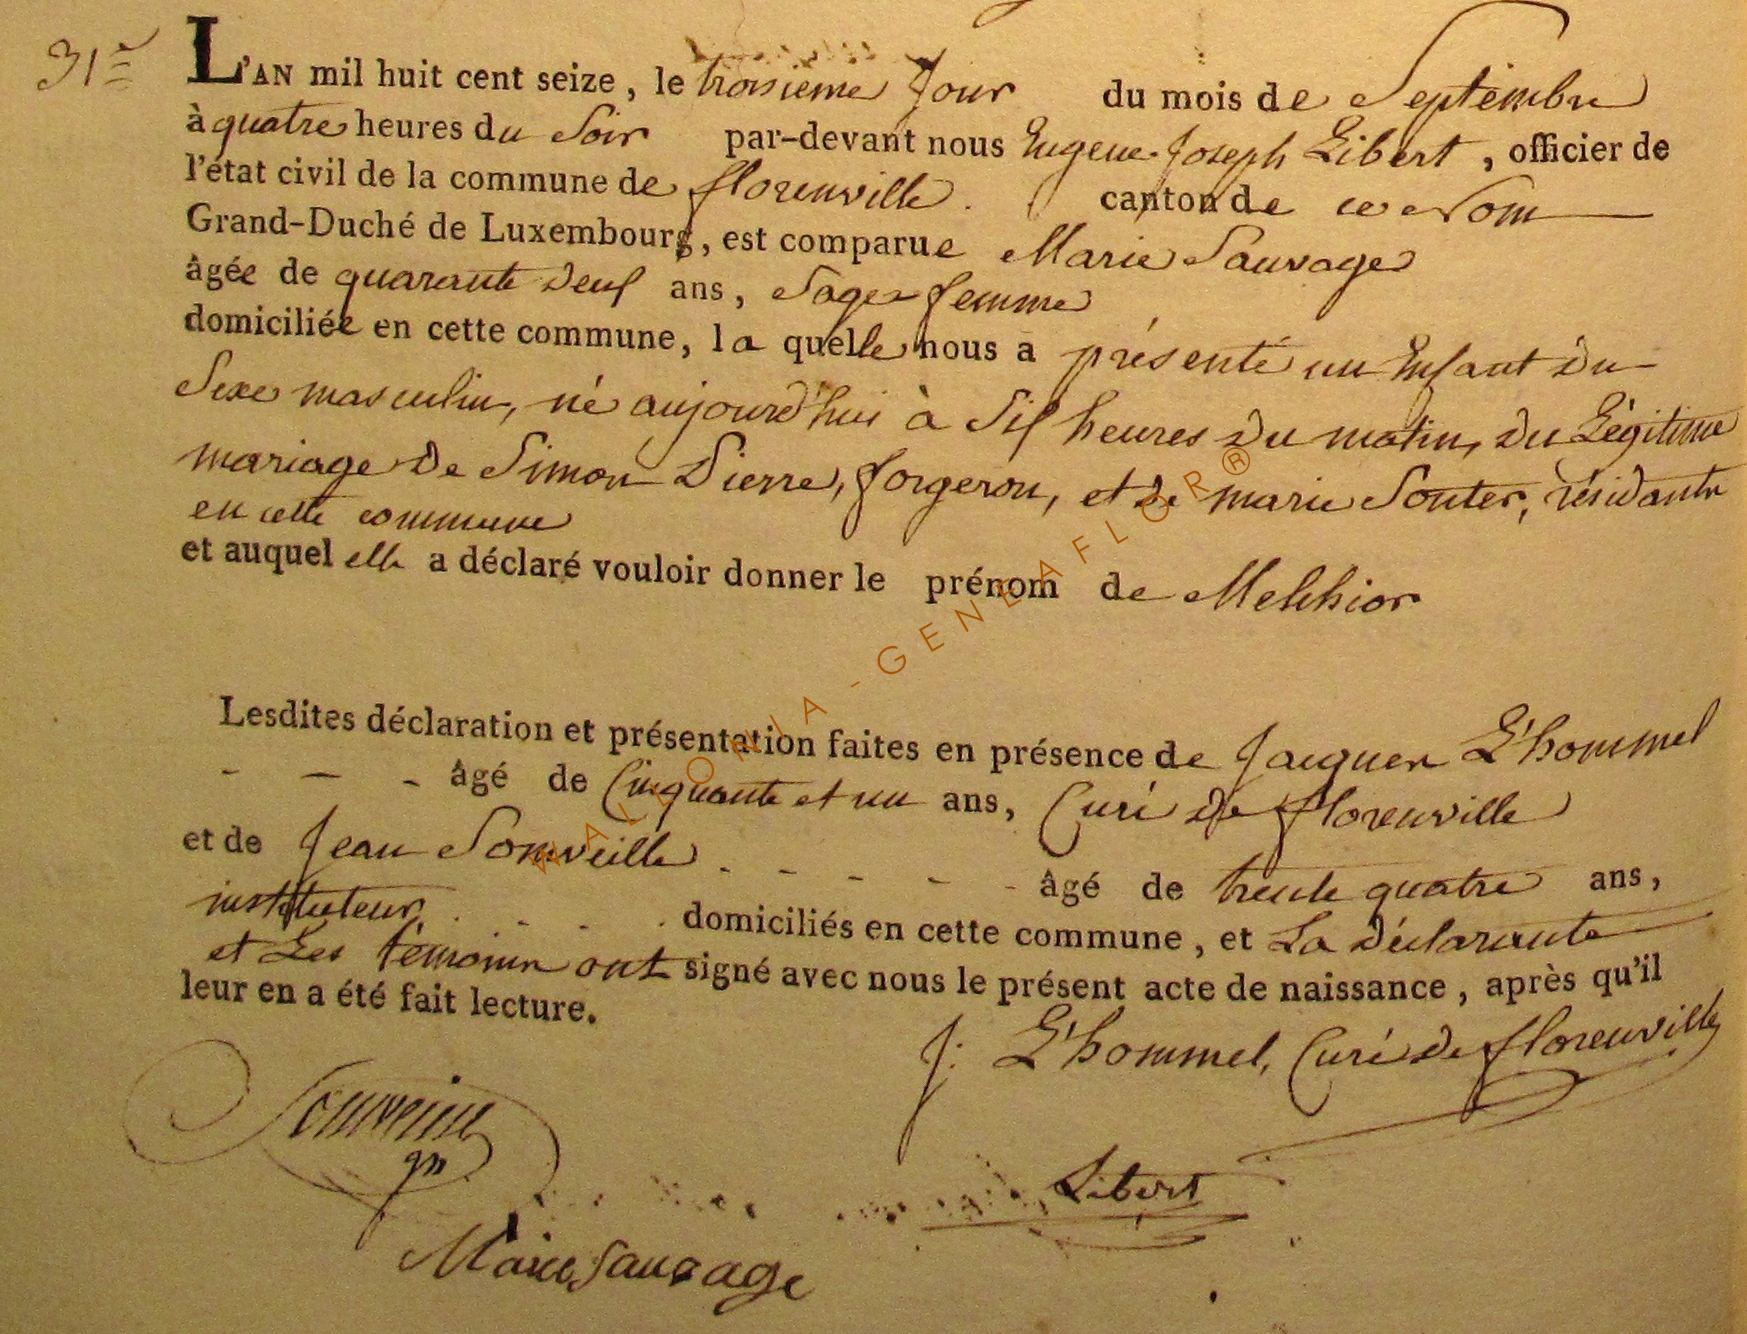 31e
L'AN mil huit cent seize, le troisieme Jour du mois de Septembre
à quatre heures du Soir par-devant nous Eugene Joseph Libert, officier de
l'état civil de la commune de florenville. canton de ce Nom
Grand-Duché de Luxembourg, est comparue Marie Sauvage
âgée de quarante deuf ans, Sage-femme
domiciliée en cette commune, la quelle nous a présenté un Enfant du
Sexe masculin, né aujourd'hui à Sif heures du matin, du Légitime
mariage de Simon Pierre, forgeron, et de marie Souter, résidants
en cette commune
et auquel elle a déclaré vouloir donner le prénom de Melchior
Lesdites déclaration et présentation faites en présence de Jacques L'hommel
- - - âgé de Cinquante et un ans, Curé de florenville
et de Jean Somveille - - - - - âgé de trente quatre ans,
instituteur . . - . domiciliés en cette commune, et La déclarante
et Les témoins ont signé avec nous le présent acte de naissance, après qu'il
leur en a été fait lecture.
J: L'hommel, Curé de florenville
Libert
Marie Sauvage
WALLONIA-GENEAFLOR®